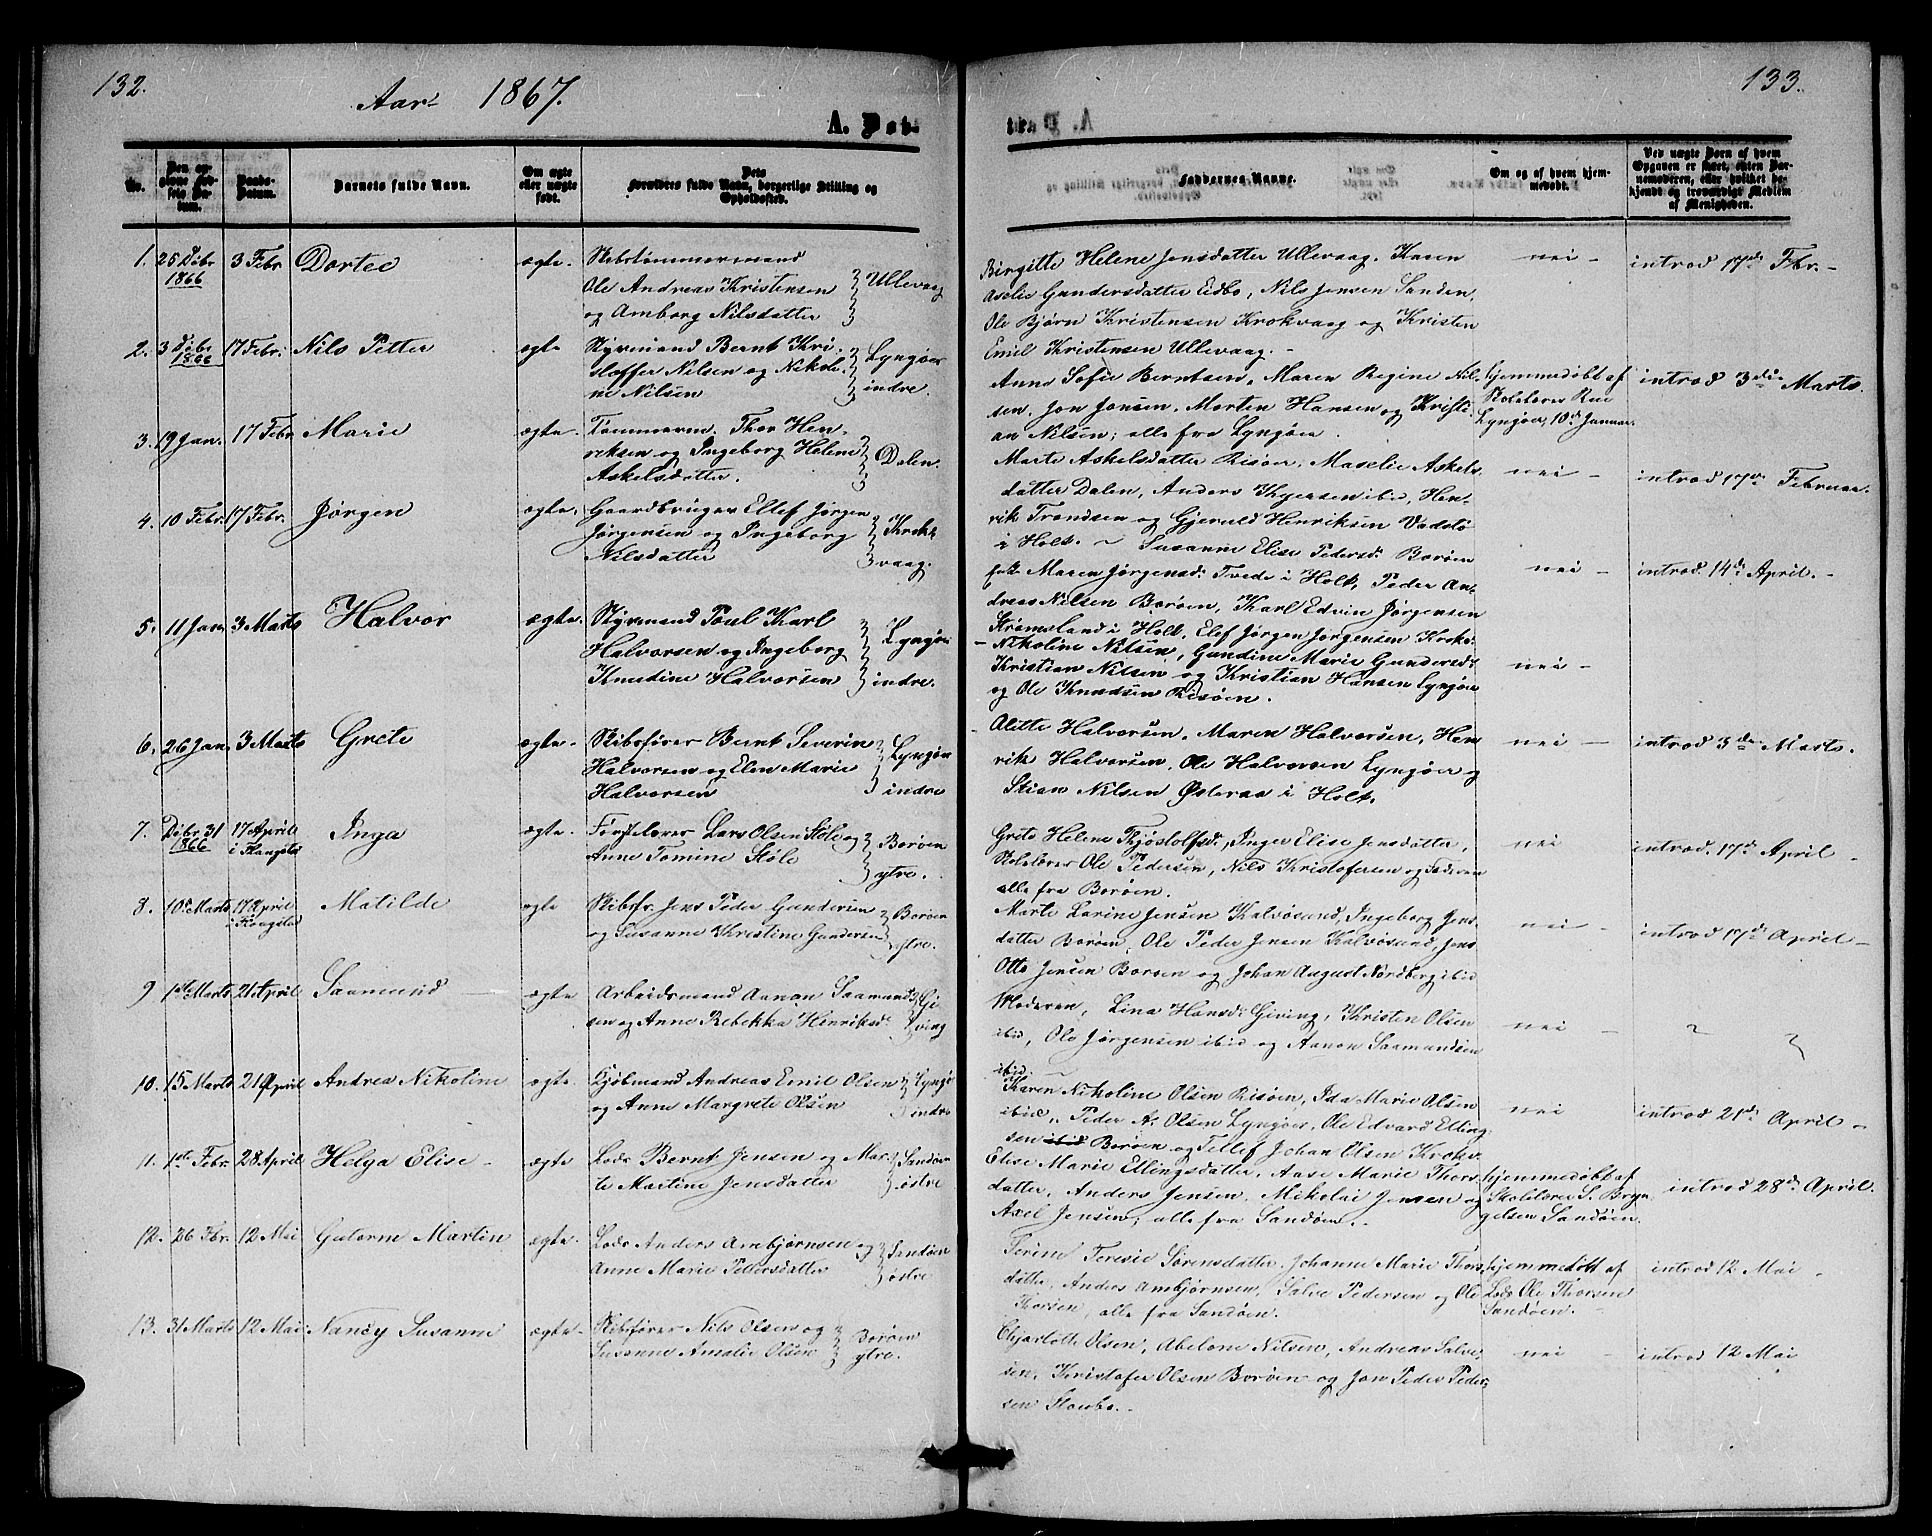 132.
Aar 1867.
A. Døb-
Nr.
Den opgivne Fødsels Datum.
Daabs-Datum.
Barnets fulde Navn.
Om ægte eller uægte født.
Dets Forældres fulde Navn, borgerlige Stilling og Opholdssted.
1. 25 Debr 1866 3 Febr Dortee ægte. Skibstømmermand
Ole Andreas Kristensen Ullevaag
og Amborg Nilsdatter
2. 3 Debr 1866 17 Febr. Nils Petter ægte Styrmand Bernt Kri-
stoffer Nilsen og Nikoli- Lyngøer
ne Nilsen indre.
3. 19 Jan. 17 Febr Marie ægte. Tømmerm. Thor Hen-
riksen og Ingeborg Helene Dalen.
Askelsdatter.
4. 10 Febr. 17 Febr. Jørgen ægte. Gaardbruger Ellef Jørgen
Jørgensen og Ingeborg Krok-
Nilsdatter vaag.
5. 11 Jan. 3 Marts Halvor ægte. Styrmand Poul Karl
Halvorsen og Ingeborg Lyngør
Knudine Halvorsen indre.
6. 26 Jan. 3 Marts Grete ægte. Skibsfører Bernt Severin
Halvorsen og Elen Marie Lyngøer
Halvorsen indre
7. Debr 31 1866 17 April i Flangstad Inga ægte. Fyrforløber Lars Olsen Støle og Borøen
Anne Tomine Støle ytre.
8. 10de Marts 17 April Matilde ægte Skibsfr. Jens Peder Gundersen Borøen
og Susanne Kristine Gundersen ytre.
9 1ste Marts 21 April Saamund ægte Arbeidsmand Aanon Saamund-
sen og Anne Rebekka Henriksd. Giving
10. 15 Marts 21 April Andrea Nikoline ægte. Kjøbmand Andreas Emil Olsen Lyngø
og Anne Margrete Olsen indre
11. 1ste Febr. 28 April Helga Elise ægte Lods Bernt Jensen og Mar- Sandøen
te Martine Jensdatter østre
12. 26 Fbr. 12 Mai Gutorm Martin ægte. Lods Anders Ambjørnsen og Sandøen
Anne Marie Pedersdatter østre
13. 31 Marts 12 Mai Nancy Susanne ægte. Skibsfører Nils Olsen og Borøen
Susanne Amalie Olsen ytre.
133.
Faddernes Navne.
Om og af hvem hjemmedøbt.
Ved uægte Børn af hvem Opgaven er skeet, enten Barnemoderen, eller hvilket bekjendt og troværdigt Medlem af Menigheden.
Birgitte Helene Jensdatter Ullevaag. Karen nei - introd 17de Fbr. -
Aselie Gundersdatter Eidbo, Nils Jensen Sanden,
Ole Bjørn Kristensen Krokvaag og Kristen
Emil Kristensen Ullevaag. -
Anne Sofie Berntsen, Maren Regine Nil- hjemmedøbt af introd 3die Marts.
sen, Jon Jonsen, Morten Hansen og Kristi- Skolelærer
an Nilsen; alle fra Lyngøer. Lyngøer, 10de Januar.
Marte Askelsdatter Risøer, Maselie Askels- nei - introd 17de Februar.
datter Dalen, Anders ibid, Hen-
rik Trondsen og Gjeruld Henriksen
i Holt. - Susanne Elise Pedersd. Borøen nei - introd. 14de April. -
Maren Jørgensd. Tvede i Holt, Peder An-
dreas Nilsen Borøen, Karl Edvin Jørgensen
i Holt, Elef Jørgen Jørgensen Krokv.
- Nikoline Nilsen, Gundine Marie Gundersd. nei -
Kristian Nilsen og Kristian Hansen Lyngøer
og Ole Knudsen Risøen.
Olette Halvorsen, Maren Halvorsen, Hen- nei - introd 3de Marts.
rik Halvorsen, Ole Halvorsen Lyngøer og
Stian Nilsen Østeraa i Holt.
Grete Helene Thjøstolfsd., Inger Elise Jensdatter, nei introd. 17de April -
Skolelærer Ole Pedersen, Nils Kristofersen og Faderen
alle fra Borøen.
Marte Larine Jensen Kalvøsund, Ingeborg Jens- nei - introd 17de April -
datter Borøen, Ole Peder Jensen Kalvøsund, Jens
Otto Jensen Borøen og Johan August Nordberg ibid
Moderen, Lina Hansd. Giving, Kristen Olsen nei -
ibid, Ole Jørgensen ibid og Aanon Saamundsen
ibid. -
Karen Nikoline Olsen Risøen, Ida Marie Olsen nei - introd 21de April -
ibid, Peder A. Olsen Lyngøer, Ole Edvard Elling-
sen ibid Borøen og Tellef Johan Olsen Krokv.
Elise Marie Ellingsdatter, Aase Marie Thors- hjemmedøbt af introd 28de April.
datter, Anders Jensen, Nikolai Jensen og Skolelærer S. Bryn-
Axel Jensen, alle fra Sandøen. - gelsen Sandøen.
Terine Teresie Sørensdatter, Johanne Marie Thors- hjemmedøbt af introd 12 Mai -
datter, Anders Ambjørnsen, Salve Pedersen og Ole Lods Ole Thorsen
Thorsen, alle fra Sandøen. Sandøen. -
Chjarlotte Olsen, Abelone Nilsen, Andreas Salve- nei - introd 12 Mai
sen, Kristofer Olsen Borøen og Jon Peder Peder-
sen Staubø. -